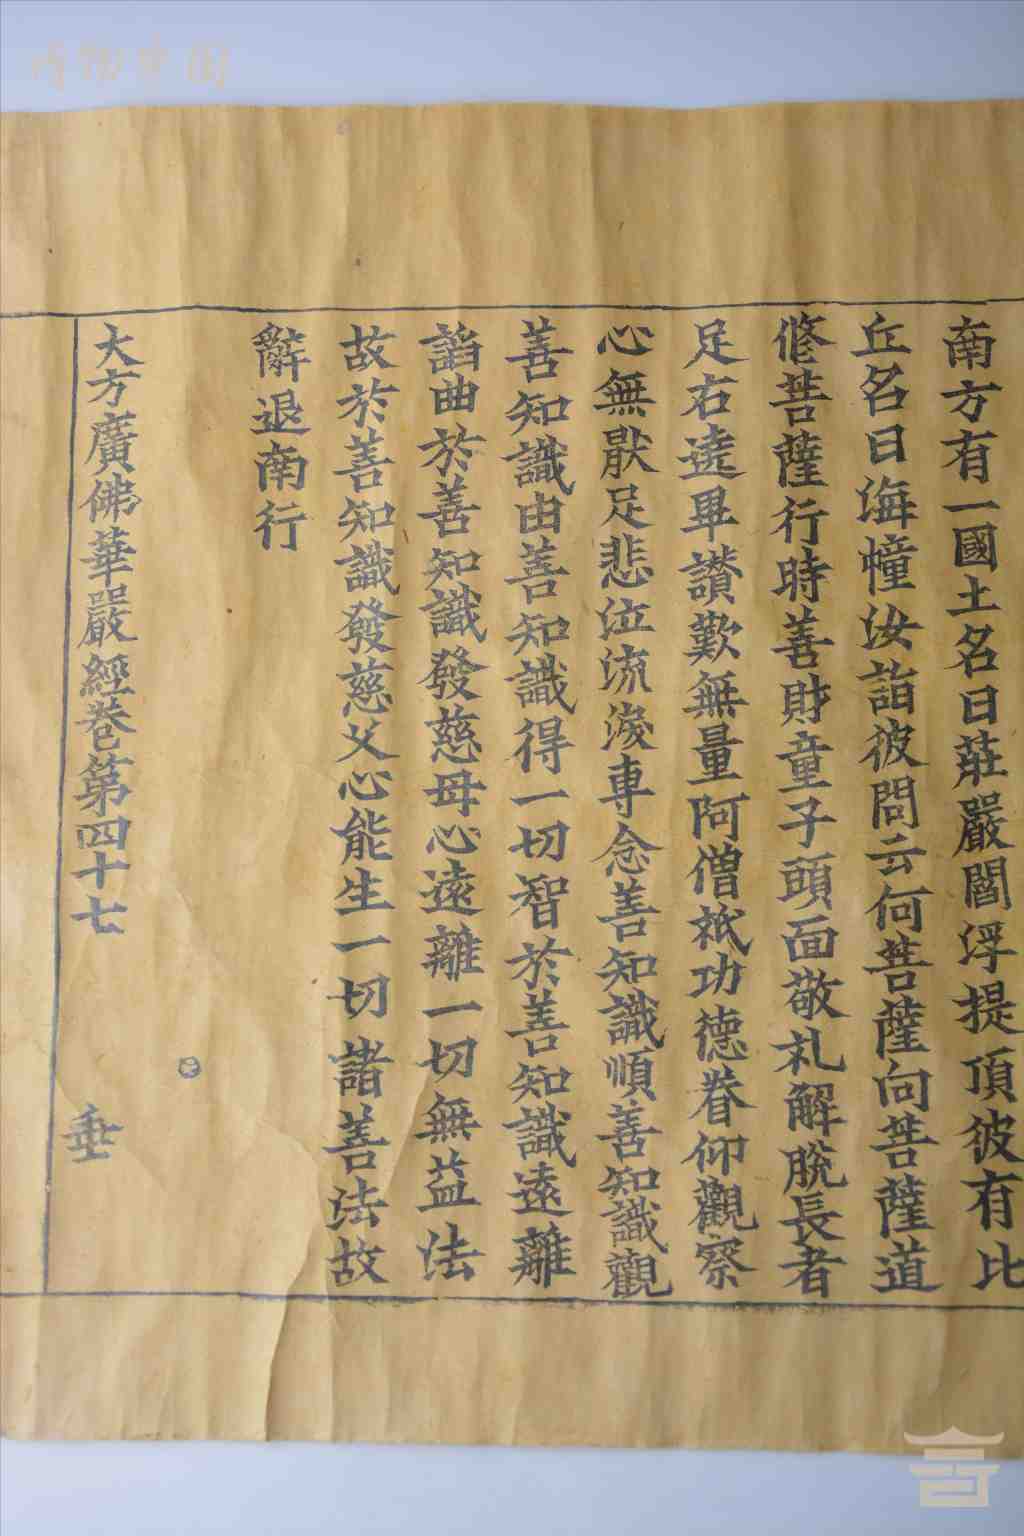 南方有一國土名曰莊嚴閻浮提頂彼有比
丘名曰海幢汝詣彼問云何菩薩向菩薩道
修菩薩行時善財童子頭面敬礼解脫長者
足右遶畢讃歎無量阿僧祇功德眷仰觀察
心無猒足悲泣流淚專念善知識順善知識觀
善知識由善知識得一切智於善知識遠離
諂曲於善知識發慈母心遠離一切無益法
故於善知識發慈父心能生一切諸善法故
辭退南行
大方廣佛華嚴經卷第四十七 垂